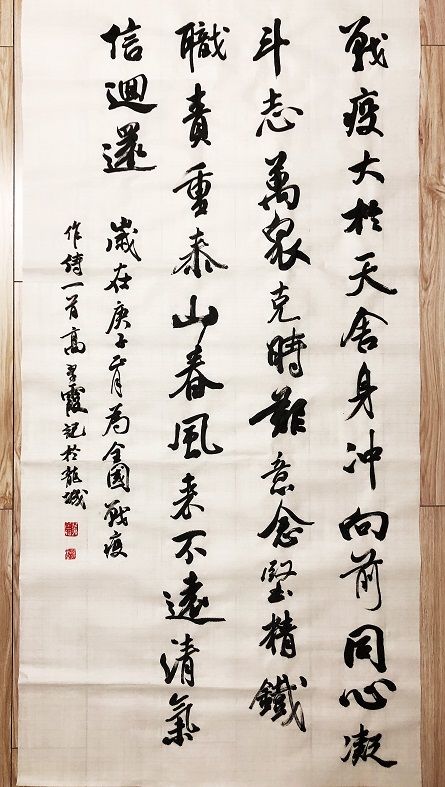 戰疫大於天舍身冲向前同心凝
斗志萬衆克時難意念堅精鐵
職責重泰山春風來不遠清氣
信迴還
歲在庚子正月為全國戰疫
作詩一首高雪霞記於龍城